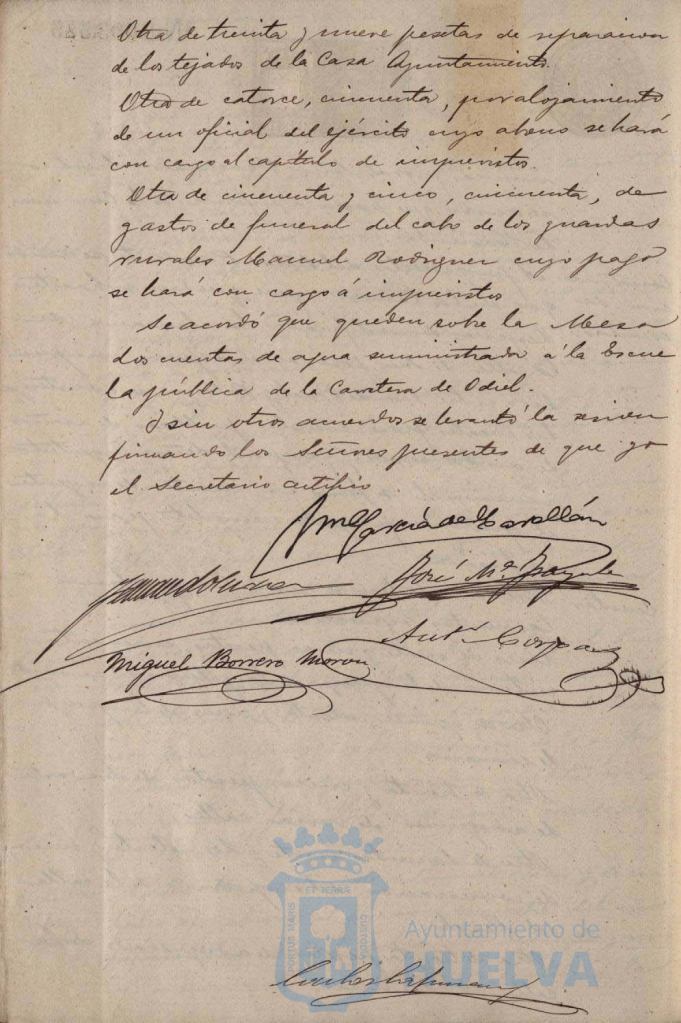 Otra de treinta y nueve pesetas de reparacion
de los tejados de la Casa Ayuntamiento.
Otra de catorce, cincuenta, por alojamiento
de un oficial del ejército cuyo abono se hará
con cargo al capítulo de imprevistos.
Otra de cincuenta y cinco, cincuenta, de
gastos de funeral del cabo de los guardas
rurales Manuel Rodriguez cuyo pago
se hará con cargo á imprevistos
Se acordó que queden sobre la Mesa
dos cuentas de agua suministrada á la Escue
la pública de la Carretera de Odiel.
Y sin otros acuerdos se levantó la sesion
firmando los Señores presentes de que yo
el Secretario certifico
García de
José Mª
Antº
Miguel Borrero Moron
PORTUS MARIS
ET TERRÆ
CUSTODIA
Ayuntamiento de
HUELVA